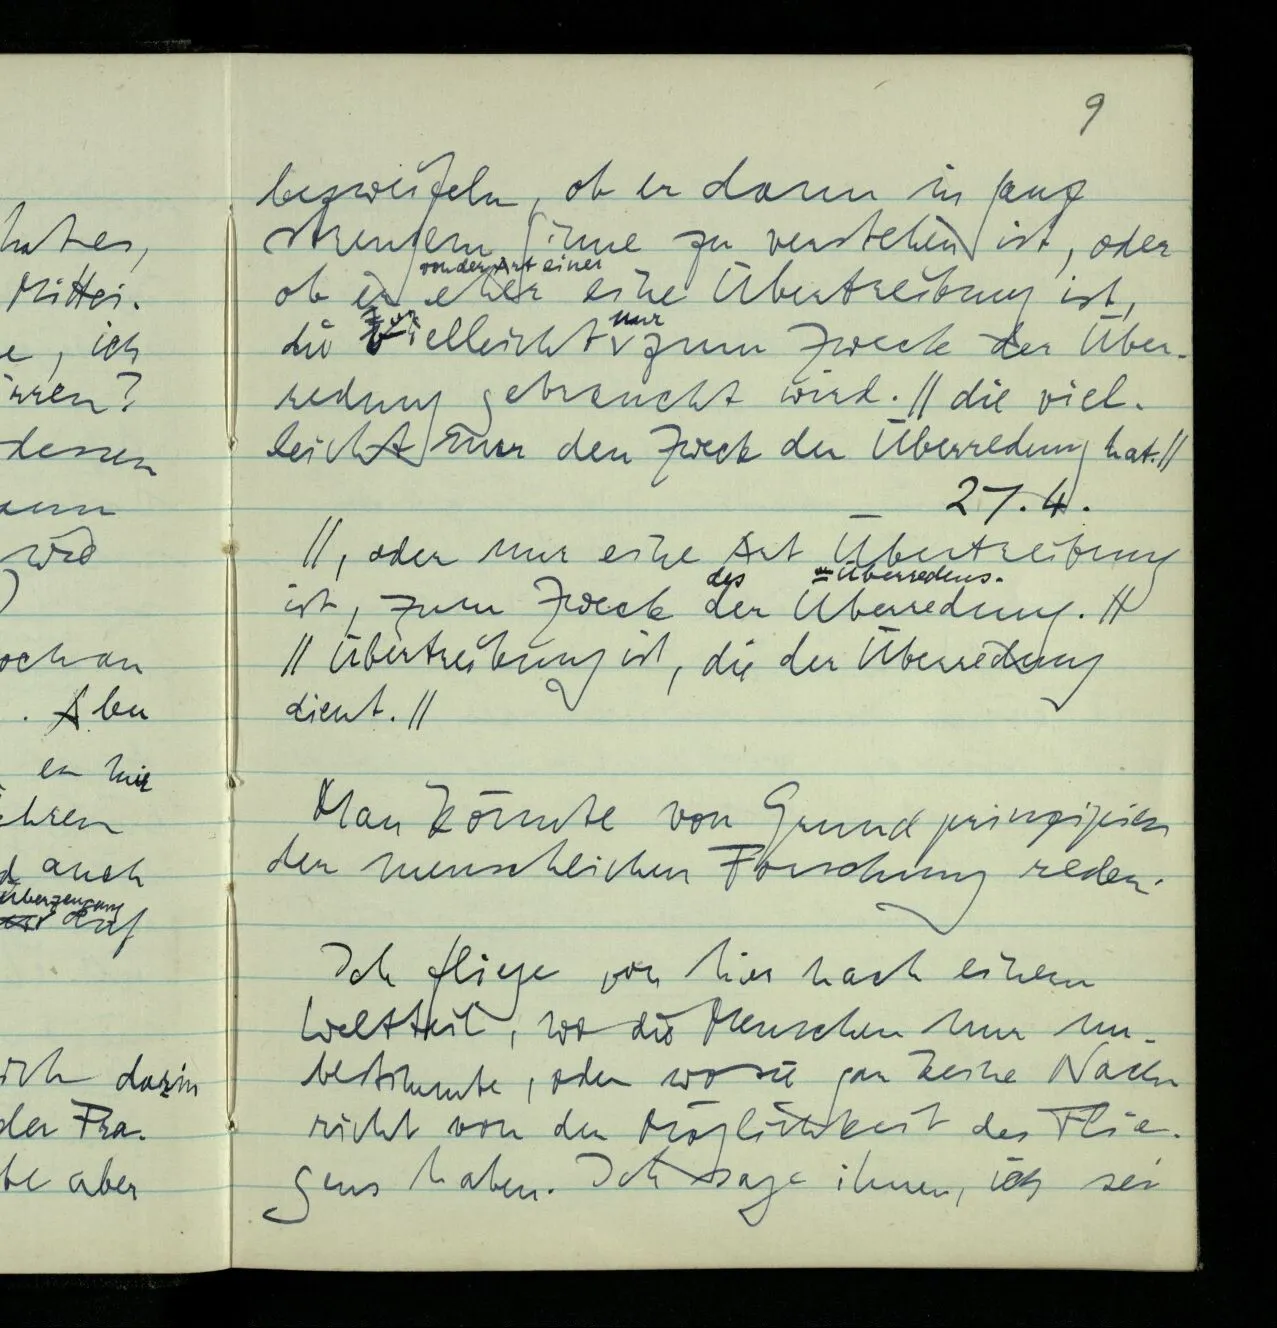 hat es,
Mittei-
e, ich
irren?
dessen
ann
wird
och an
. Aber
er hier
ehren
d auch
Überzeugung
auf
ich darin
der Fra-
te aber
9
bezweifeln, ob er dann in ganz
strengem Sinne zu verstehen ist, oder
von der Art einer
ob er eher eine Übertreibung ist,
nur
die vielleicht zum Zweck der Über-
redung gebraucht wird. // die viel-
leicht nur den Zweck der Überredung hat. //
27.4.
//, oder nur eine Art Übertreibung
des Überredens.
ist, zum Zweck der Überredung. //
// Übertreibung ist, die der Überredung
dient. //
Man könnte von Grundprinzipien
der menschlichen Forschung reden.
Ich fliege von hier nach einem
Weltteil, wo die Menschen nur un-
bestimmte, oder wo sie gar keine Nach
richt von der Möglichkeit des Flie-
gens haben. Ich sage ihnen, ich sei